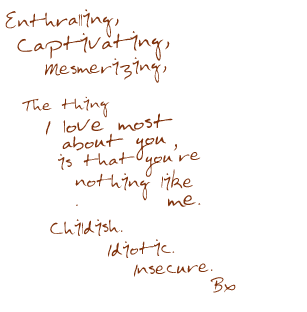 Enthralling,
Captivating,
mesmerizing,
The thing
I love most
about you,
is that you're
nothing like
me.
Childish.
Idiotic.
Insecure.
Bx